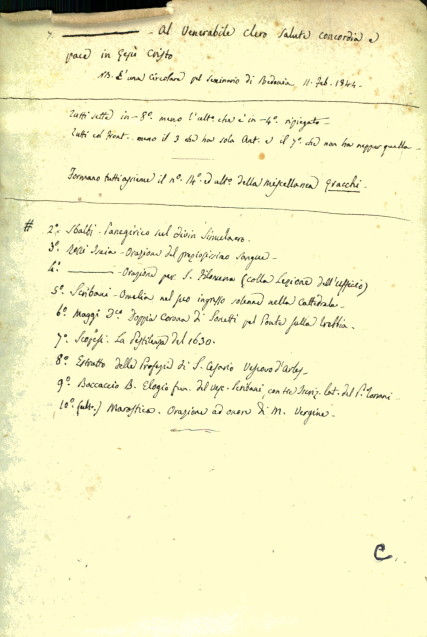 7. ——— - Al Venerabile clero salute concordia e
pace in Gesù Cristo.
NB. È una circolare pel seminario di Bedonia, 11. Feb. 1844.
Tutti sette in-8º. meno l'ultº. che è in-4º. ripiegato-
Tutti col front. meno il 3 che ha solo Ant. e il 7º. che non ha neppur quella-
Formano tutti assieme il nº. 14º. ed ultº. della miscellanea Gracchi.
# 2º. Sbalbi - Panegirico sul divin Simulacro.
3º. Rossi Isaia - Orazione del preziosissimo sangue-
4º. ——— - Orazione per S. Filomena (colla Lezione dell'Uffizio)
5º. Scribani - Omelia nel suo ingresso solenne nella Cattedrale-
6º. Maggi Dca. Doppia Corona di Sonetti pel Ponte sulla Trebbia.
7º. La Pestilenza del 1630.
8º. Estratto della Profezia di S. Cesario Vescovo d'Arles-
9º. Baccaccio B. Elogio fun. del vesc. Scribani, con tre Iscriz. lat. del
10º. (ultº.) Marottica. Orazione ad onore di M. Vergine.
C